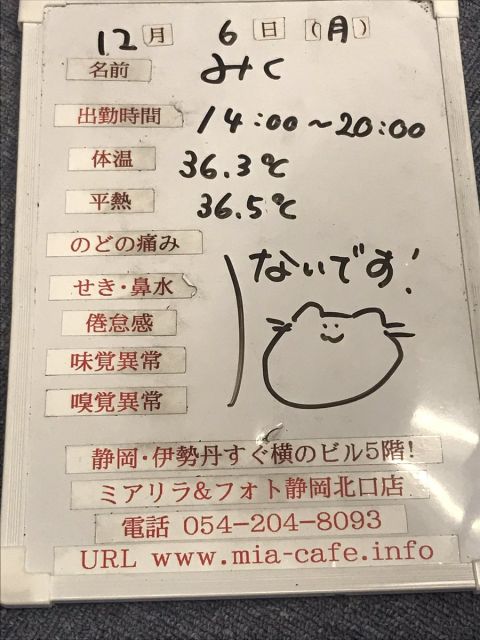 12月 6日 (月)
名前 みく
出勤時間 14:00~20:00
体温 36.3℃
平熱 36.5℃
のどの痛み
ないです!
せき・鼻水
倦怠感
味覚異常
嗅覚異常
静岡・伊勢丹すぐ横のビル5階!
ミアリラ&フォト静岡北口店
電話 054-204-8093
URL www.mia-cafe.info